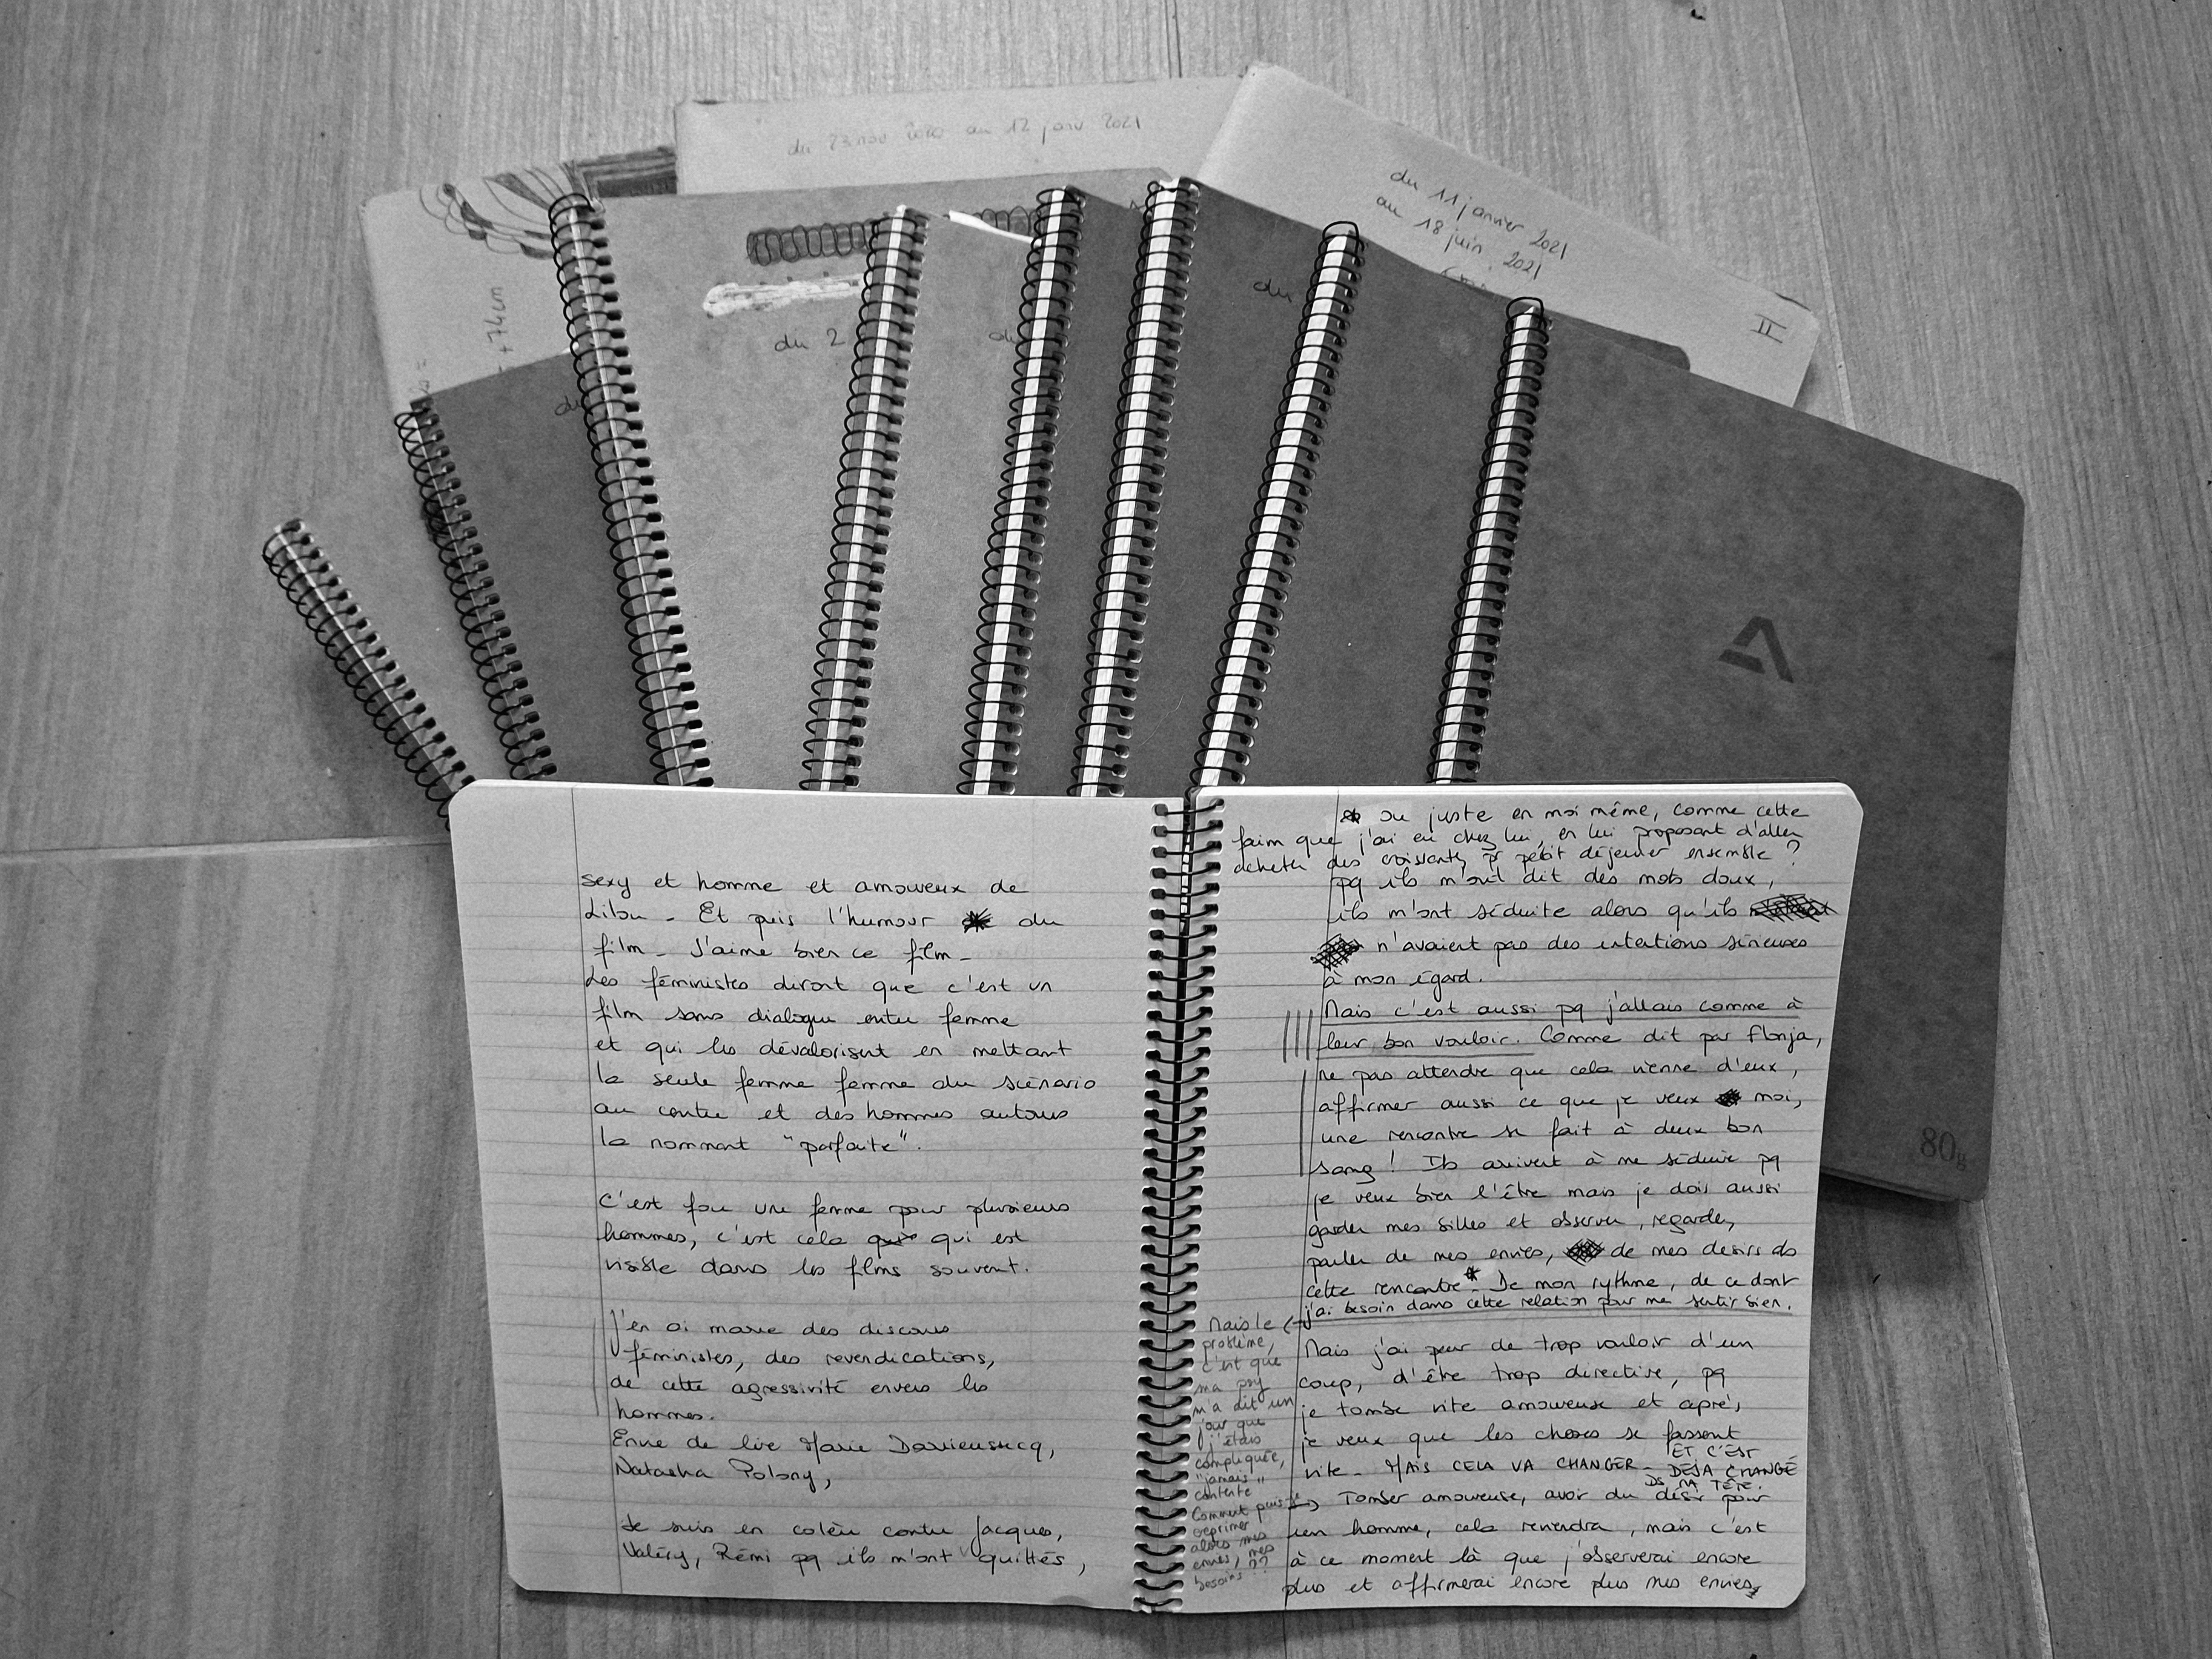 du 23 nov 2020 au 12 janv 2021
du 11 janvier 2021
au 18 juin 2021
II
+74cm
du 2
du
du
du
80g
sexy et homme et amoureux de
Lilou - Et puis l'humour du
film - J'aime bien ce film -
Les féministes diront que c'est un
film sans dialogue entre femme
et qui les dévalorisent en mettant
la seule femme femme du scénario
au centre et des hommes autours
la nommant "parfaite".
C'est fou une femme pour plusieurs
hommes, c'est cela qui est
visible dans les films souvent.
J'en ai marre des discours
féministes, des revendications,
de cette agressivité envers les
hommes.
Envie de lire Marie Darrieussecq,
Natasha Polony,
Je suis en colère contre Jacques,
Valéry, Rémi pq ils m'ont quittés,
* ou juste en moi même, comme cette
faim que j'ai eu chez lui, en lui proposant d'aller
acheter des croissants pr petit déjeuner ensemble ?
pq ils m'ont dit des mots doux,
ils m'ont séduite alors qu'ils
n'avaient pas des intentions sérieuses
à mon égard.
Mais c'est aussi pq j'allais comme à
leur bon vouloir. Comme dit par Flonja,
ne pas attendre que cela vienne d'eux,
affirmer aussi ce que je veux moi,
une rencontre se fait à deux bon
sang ! Ils arrivent à me séduire pq
je veux bien l'être mais je dois aussi
garder mes billes et observer, regarder,
parler de mes envies, de mes desirs ds
cette rencontre*. De mon rythme, de ce dont
j'ai besoin dans cette relation pour me sentir bien.
Mais le
problème,
c'est que
ma psy
m'a dit un
jour que
j'étais
compliquée,
"jamais"
contente
Comment puis-je
exprimer
alors mes
envies, mes
besoins ??
Mais j'ai peur de trop vouloir d'un
coup, d'être trop directive, pq
je tombe vite amoureuse et après,
je veux que les choses se fassent
vite - MAIS CELA VA CHANGER - ET C'EST
DÉJA CHANGÉ
DS MA TÊTE.
Tomber amoureuse, avoir du désir pour
un homme, cela reviendra, mais c'est
à ce moment là que j'observerai encore
plus et affirmerai encore plus mes envies,